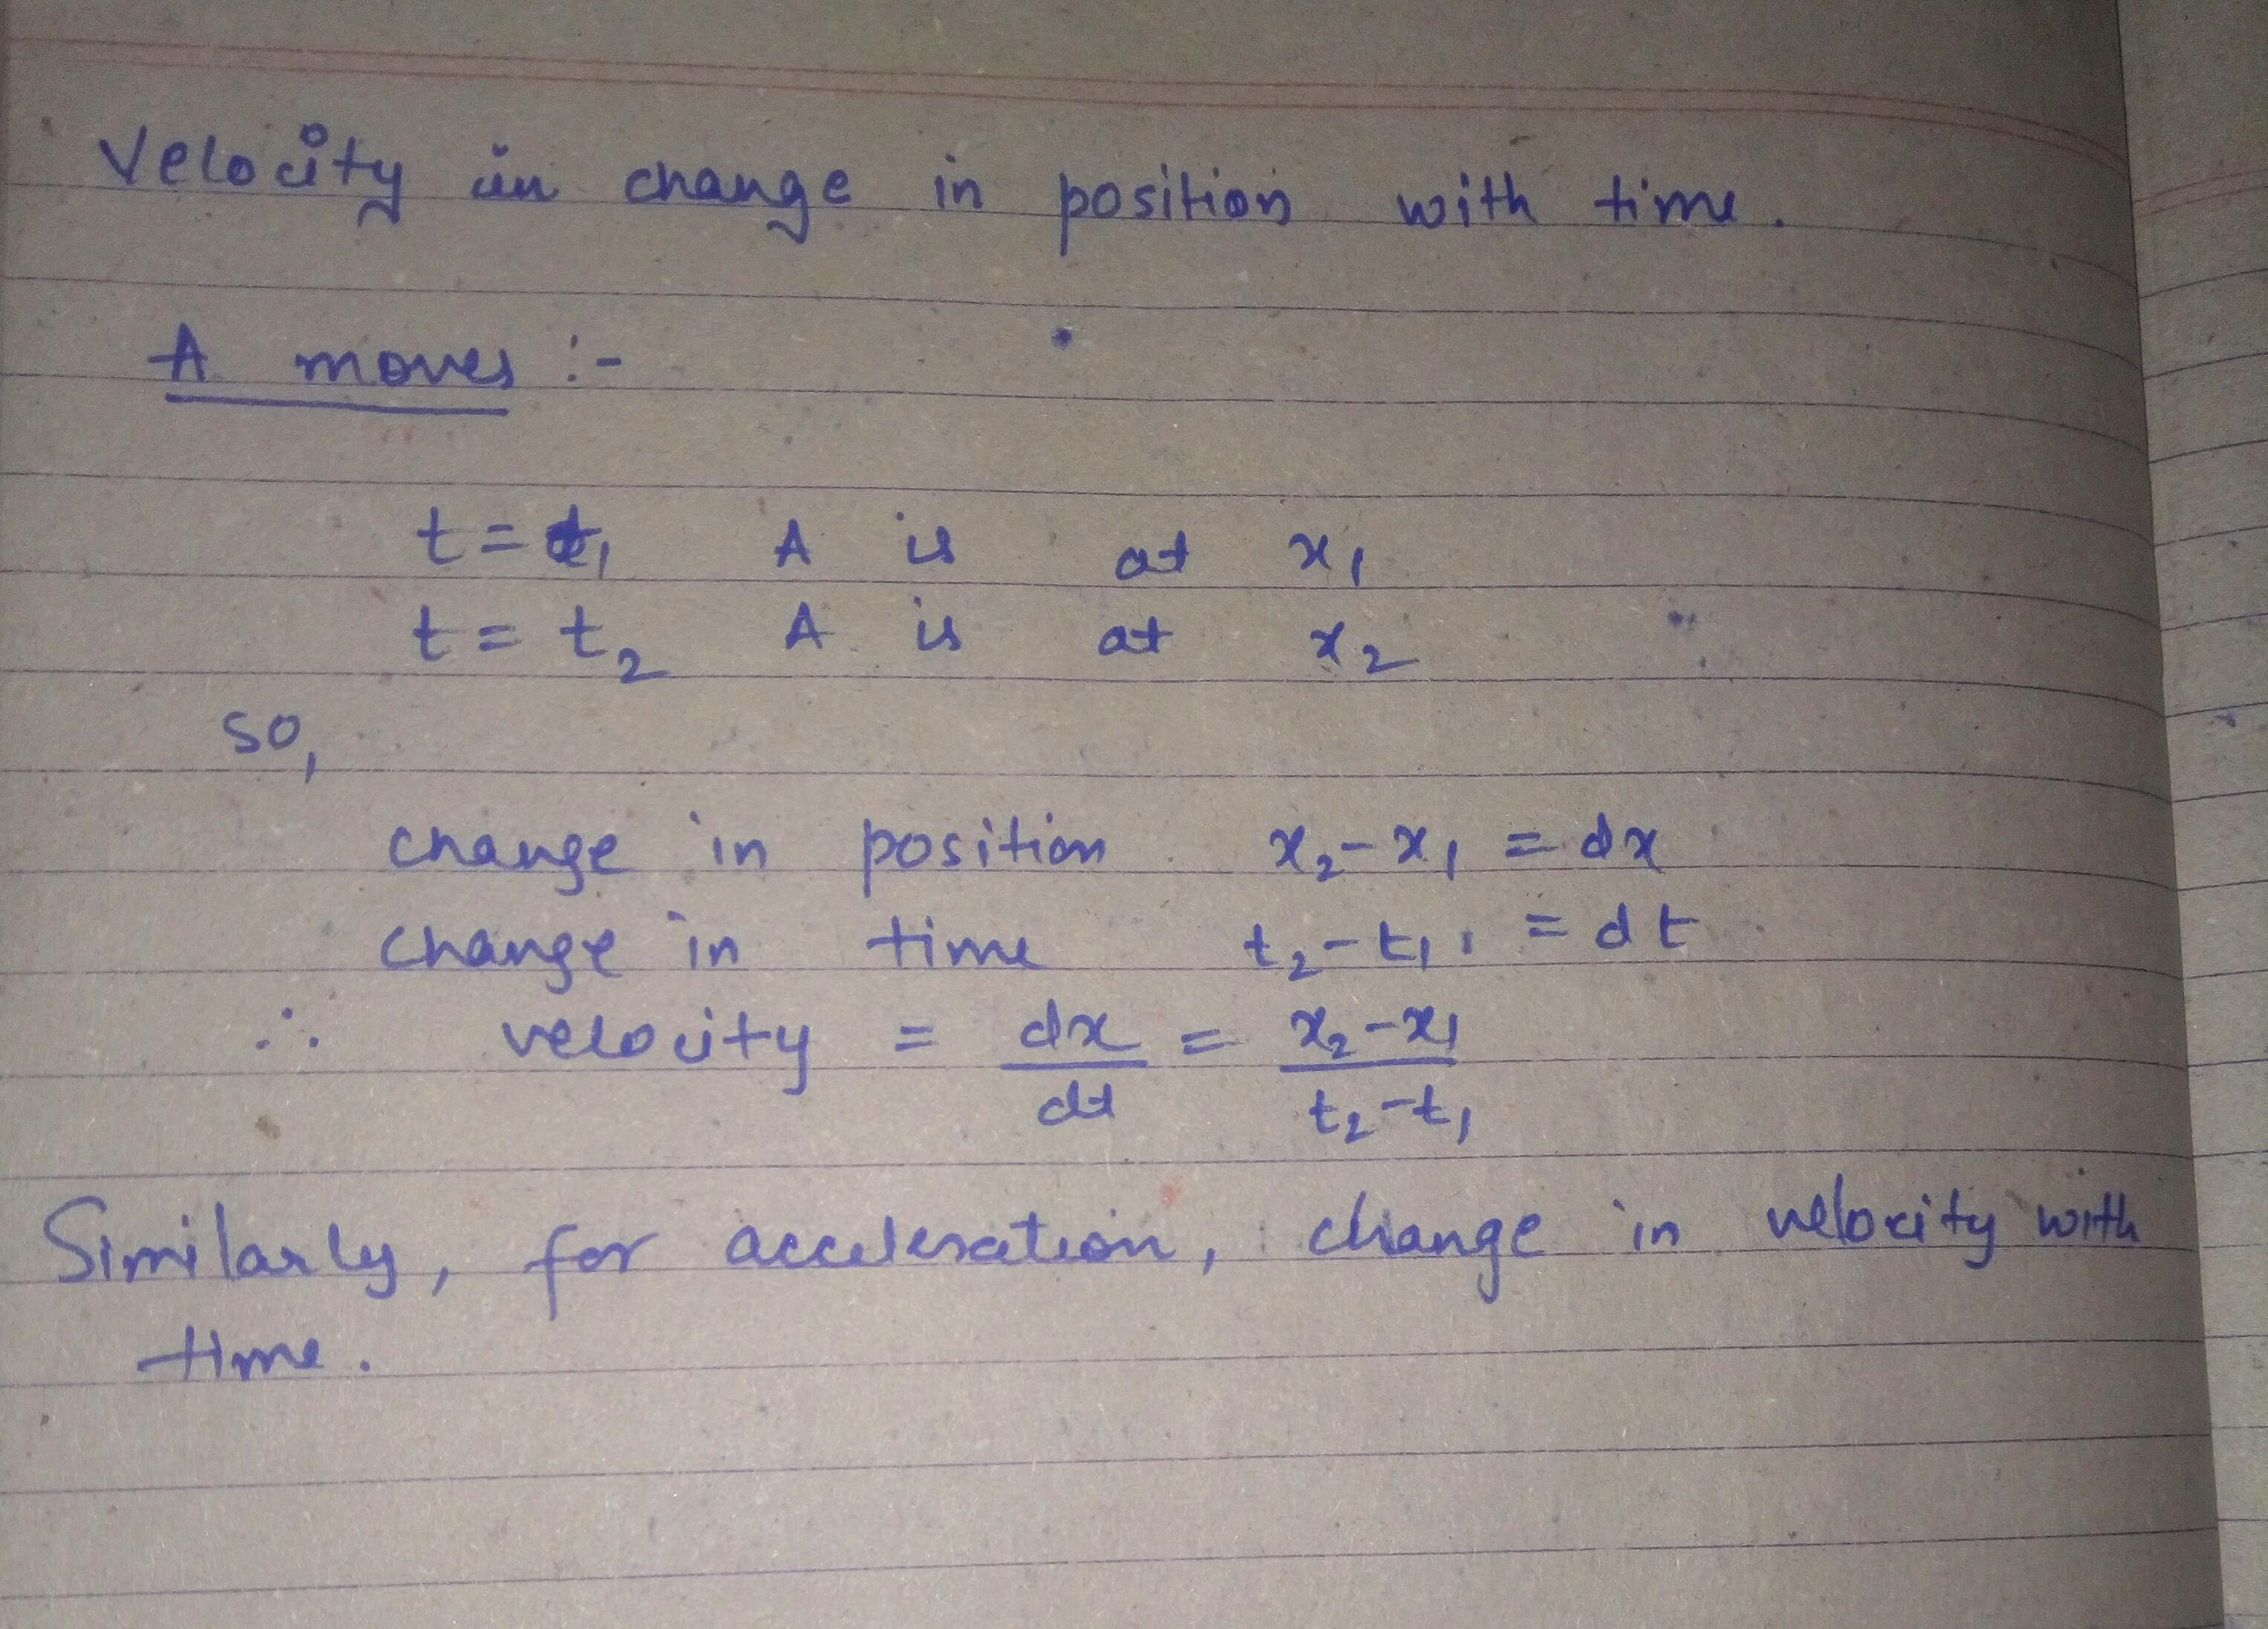 Velocity is change in position with time.
A moves :-
t = t₁ A is at x₁
t = t₂ A is at x₂
so,
change in position x₂ - x₁ = dx
change in time t₂ - t₁ = dt
∴ velocity = dx/dt = x₂ - x₁/t₂ - t₁
Similarly, for acceleration, change in velocity with
time.